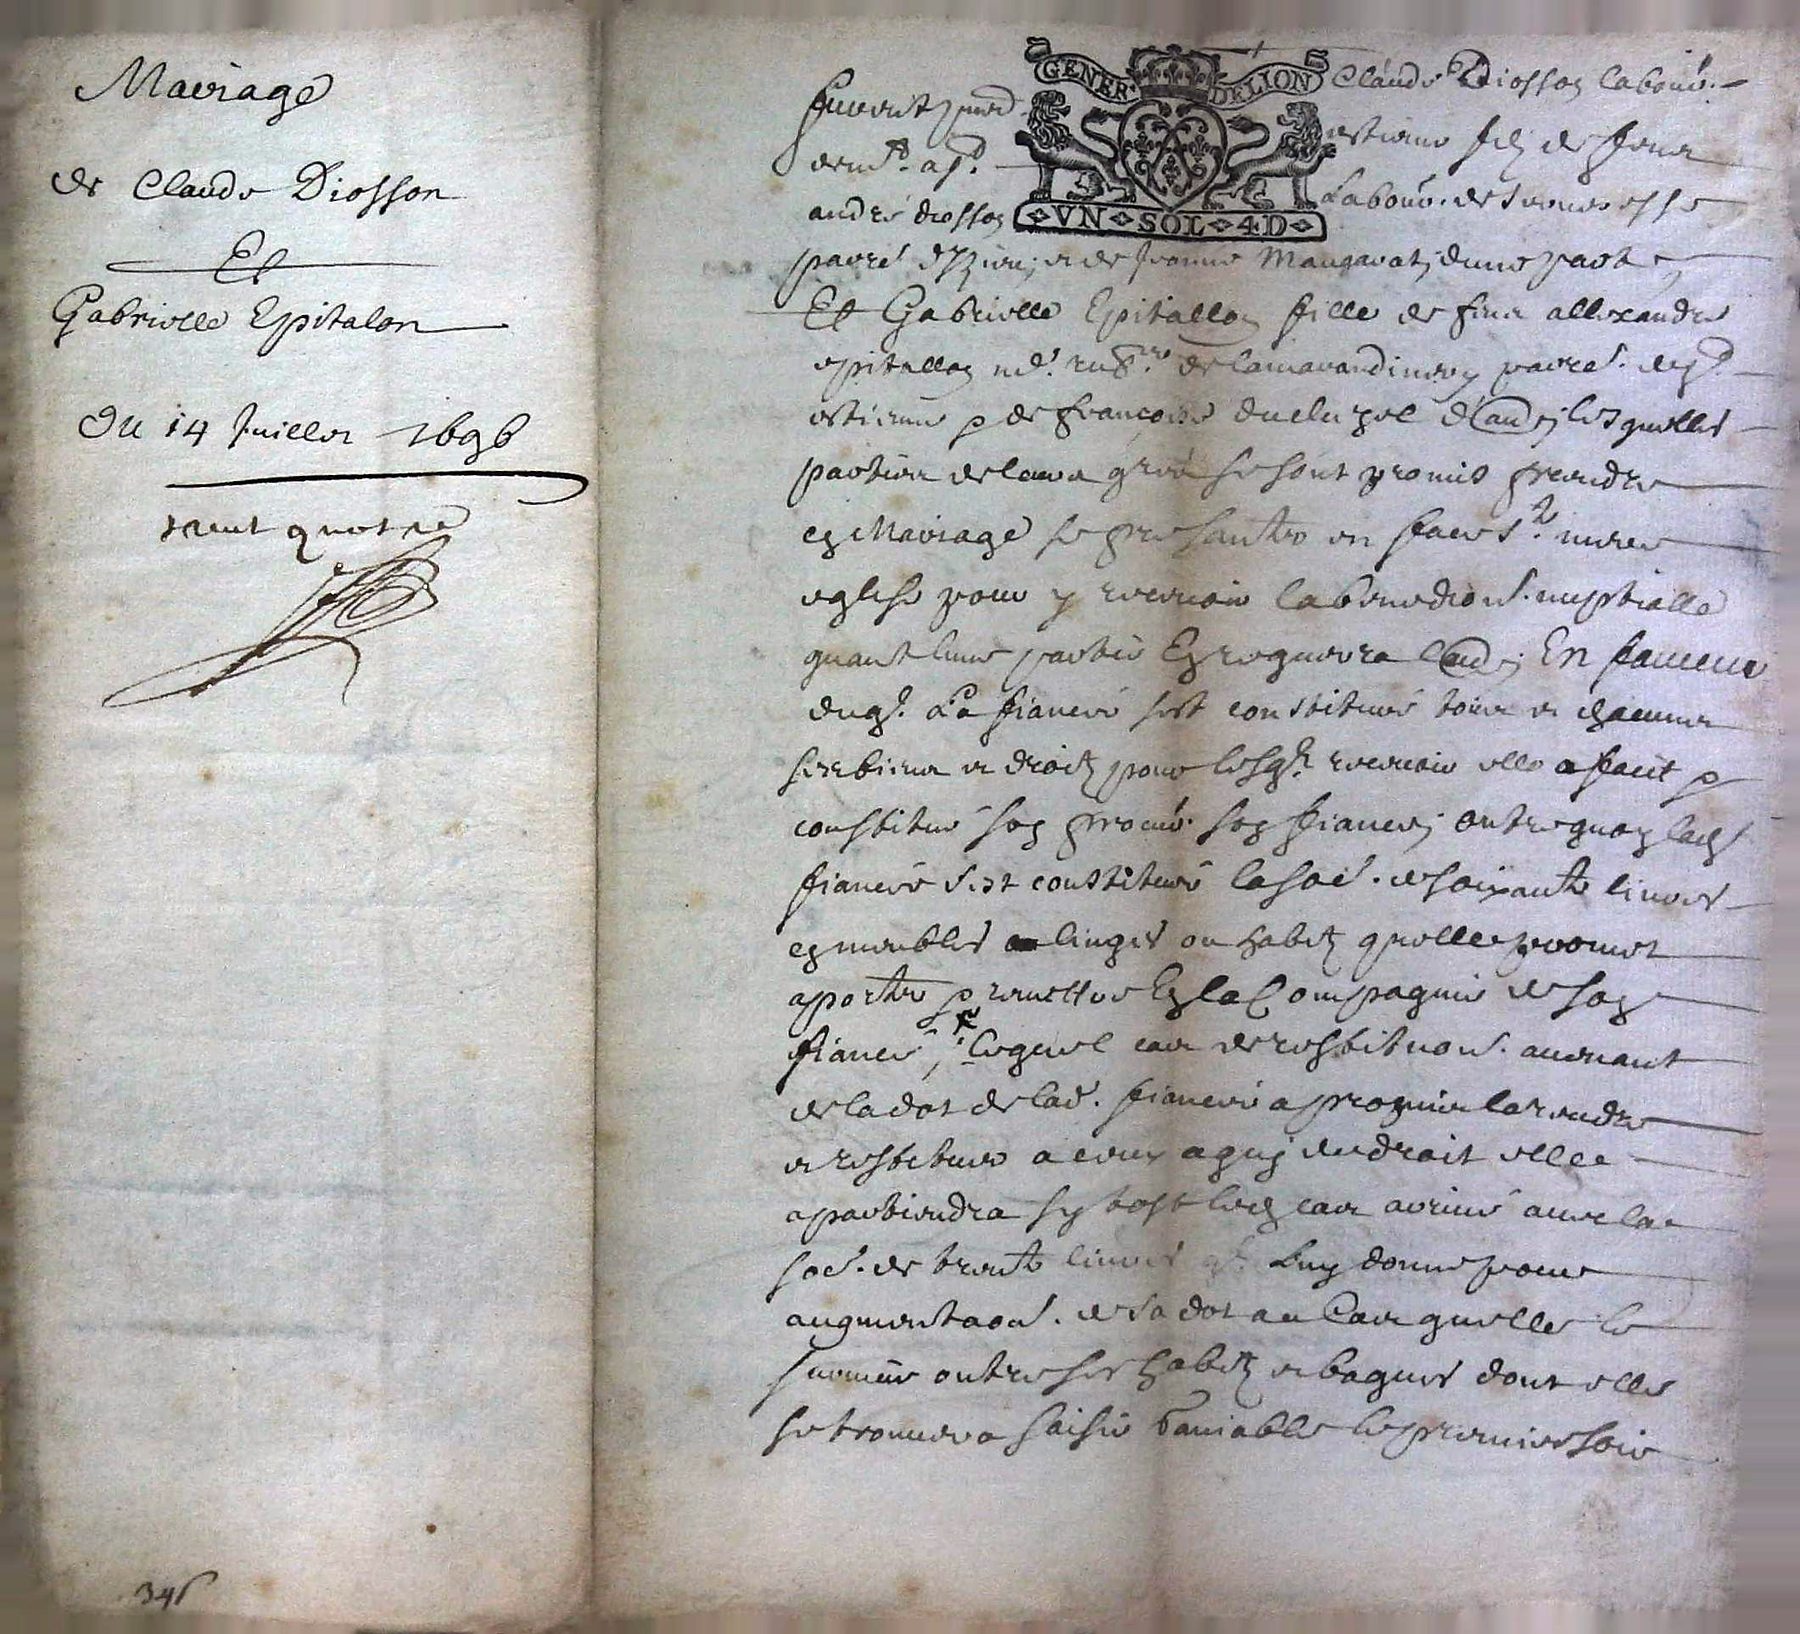 Mariage
de Claude Diosson
Et
Gabrielle Epitalon
Du 14 Juillet 1696
trent quatre
346
GENER. DELION
VN SOL 4D
furent pntz Claude Diosson labour.
estienne filz de feux
andré diosson Labour. de
parre et de Jeanne d'une part
Et Gabrielle Epitallon fille de feux allexandre
epitallon md. parre.
estienne & de françoise lesquelles
parties de leurs gréé se sont promis prendre
en Mariage se presanter en face Ste mere
eglise pour y recevoir la benedion. nuptialle
quant lune partie En requerra En faveur
duql. La fiancéé sest constituéé tous et chacuns
ses biens et droitz pour lesqls recevoir elle a fait &
constitué son procur. son fiancé outre quoy lad
fiancéé sest constituéé la soe. de soixante livres
en meubles linges ou habitz quelle promet
aporter & remettre En la Compagnie de son
fiancé, lequel cas de restituon. avenant
de la dot de lad. fiancéé a promis la rendre
et restituer a ceux a quy de droit elle
apartiendra sy tost led cas arrivé avec la
soe. de trente livres ql. Luy donne pour
augmentaon. de sa dot au Cas quelle le
survive outre ses habitz et bagues dont elle
se trouvera saisie le premier soir